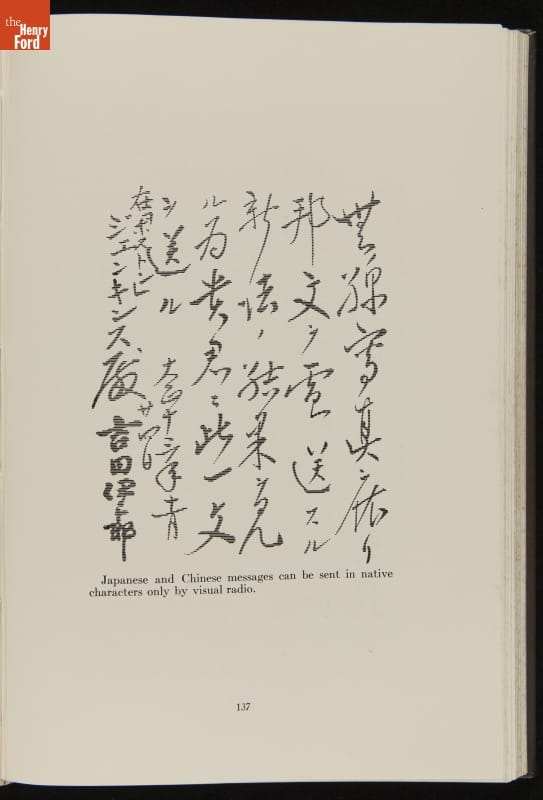 the
Henry
Ford
無線寫真ニ依リ
邦文ヲ電送スル
新法ノ結果ヲ見
ル為貴君ニ此一文
ヲ送ル 大正十三年 月
廿四日
ジェンキンス殿 吉田伊三郎
Japanese and Chinese messages can be sent in native
characters only by visual radio.
137